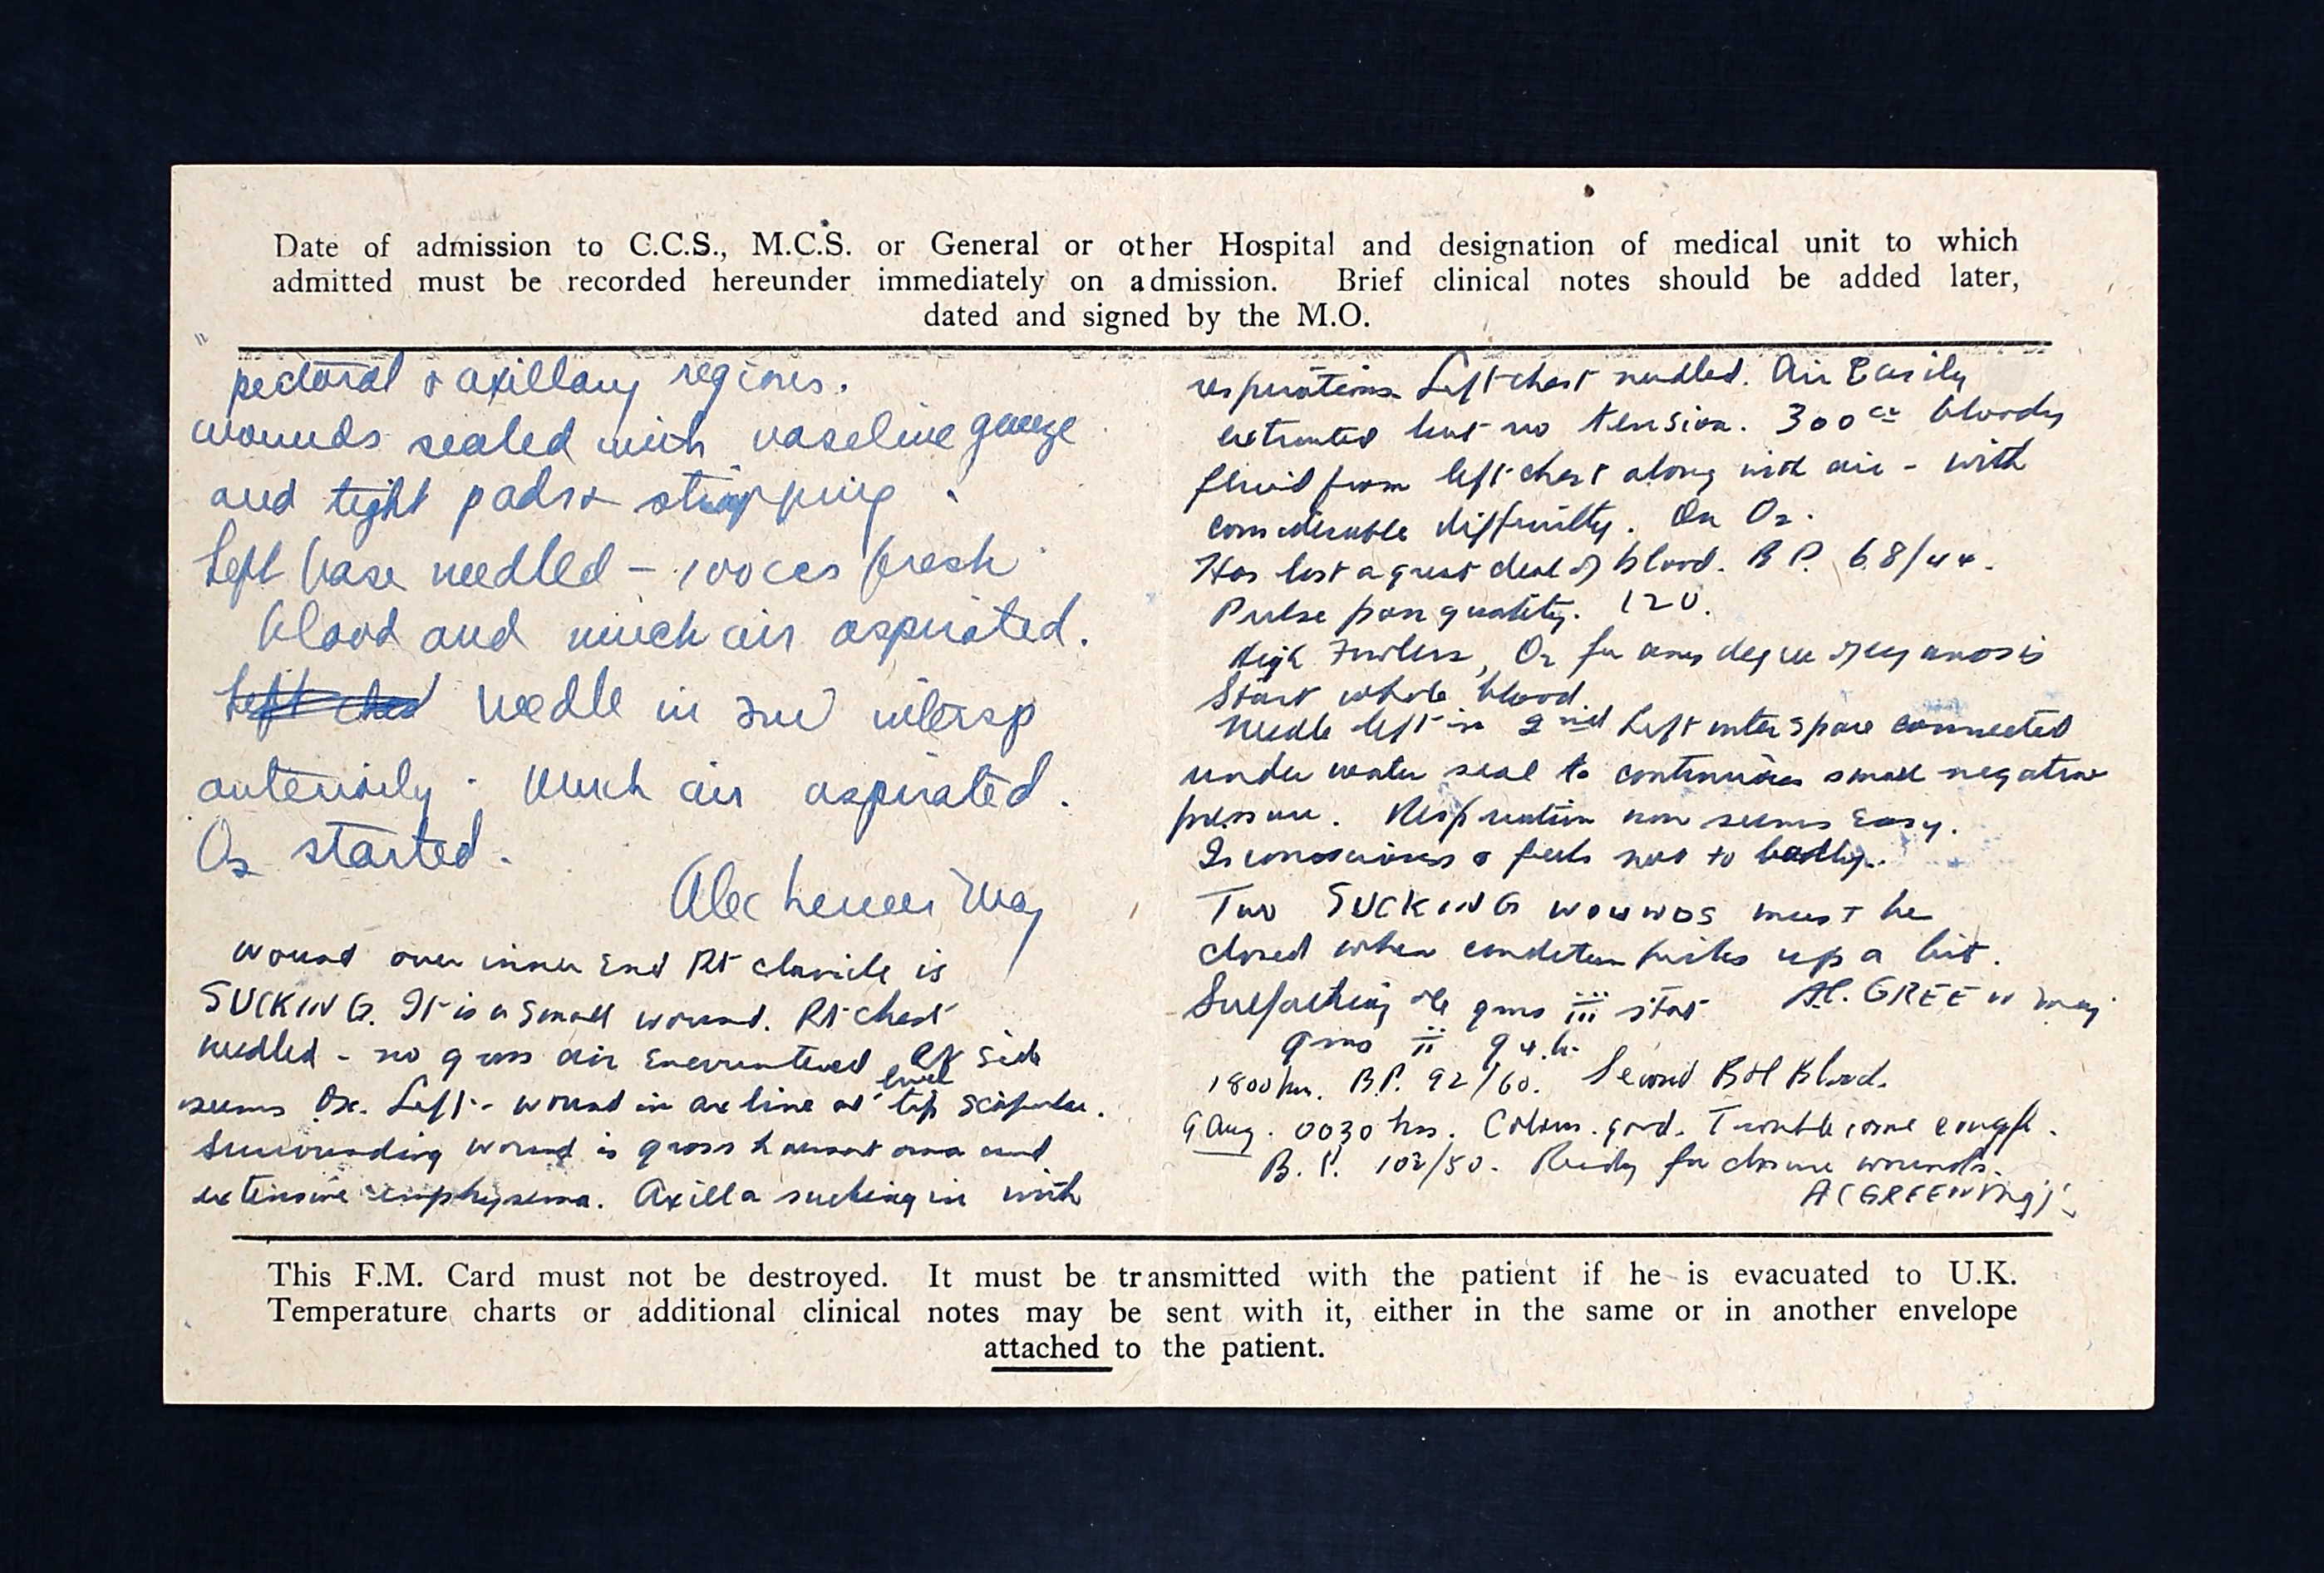 Date of admission to C.C.S., M.C.S. or General or other Hospital and designation of medical unit to which
admitted must be recorded hereunder immediately on admission. Brief clinical notes should be added later,
dated and signed by the M.O.
pectoral & axillary regions.
wounds sealed with vaseline gauze
and tight pads & strapping.
Left base needled – 100ccs fresh
blood and much air aspirated.
Left chest needle in 2nd intersp
anteriorly. Much air aspirated.
O2 started.
Alec Maj
wound over inner End Rt clavicle is
SUCKING. It is a small wound. Rt chest
needled – no gross air Encountered Rt side
seems OK. Left – wound in ax line at level tip scapulae.
Surrounding wound is gross haematoma and
extensive emphysema. Axilla sucking in with
respirations. Left chest needled. Air Easily
extracted but no tension. 300 cc bloody
fluid from left chest along with air – with
considerable difficulty. On O2.
Has lost a great deal of blood. B P. 68/44.
Pulse poor quality. 120.
High Fowlers, O2 for any degree of cyanosis
Start whole blood.
Needle left in 2nd Left interspace connected
under water seal to continuous small negative
pressure. Respiration now seems Easy.
Is conscious & feels not to badly.
Two SUCKING WOUNDS must be
closed when condition picks up a bit.
gms iii stat A.C. GREEN Maj
gms ii q 4.h.
1800 hrs. B.P. 92/60. Second Btl Blood.
9 Aug. 0030 hrs. Colour good. Troublesome cough.
B.P. 102/50. Ready for closure wounds.
A C GREEN Maj
This F.M. Card must not be destroyed. It must be transmitted with the patient if he is evacuated to U.K.
Temperature charts or additional clinical notes may be sent with it, either in the same or in another envelope
attached to the patient.